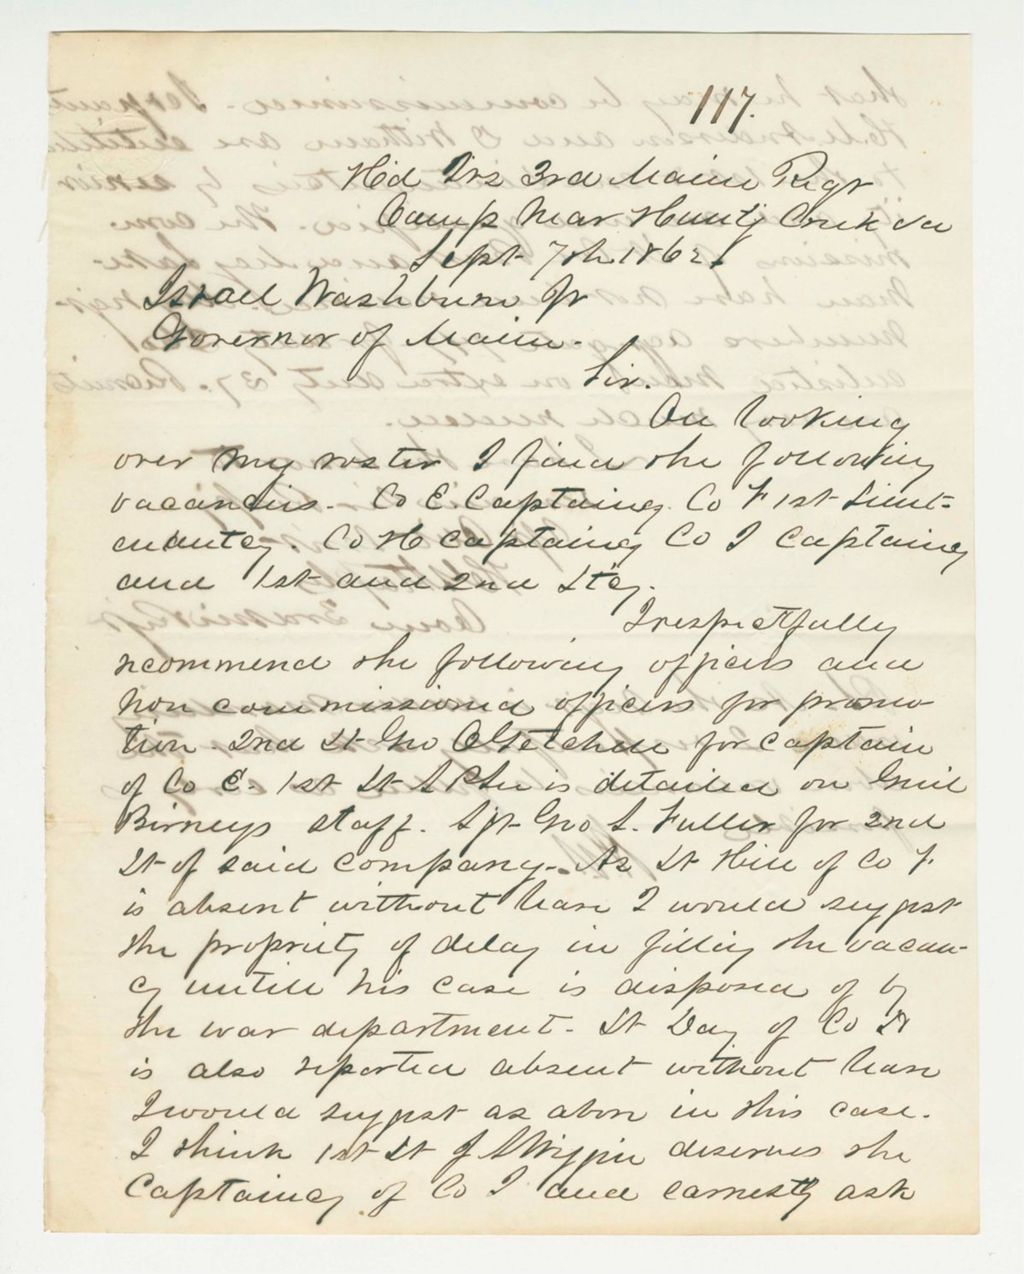 117.
Hd Qrs 3rd Maine Regt
Camp Near Hunting Creek Va
Sept 7th 1862.
Israel Washburn Jr
Governor of Maine.
Sir.
On looking
over my roster I find the following
vacancies. Co E. Captaincy. Co F 1st Lieut-
enantcy. Co H captaincy Co I Captaincy
and 1st and 2nd Lt'cy.
I respectfully
recommend the following officers and
non commissioned officers for promo
tion. 2nd Lt Geo O Getchell for captain
of Co E. 1st Lt is detailed on Genl
Birneys staff. Sgt Geo S. Fuller for 2nd
Lt of said company. As Lt Hill of Co F
is absent without leave I would suggest
the propriety of delay in filling the vacan-
cy untill his case is disposed of by
the war department. Lt Day of Co
is also reported absent without leave
I would suggest as above in this case.
I think 1st Lt J S Wiggin deserves the
Captaincy of Co I and earnestly ask